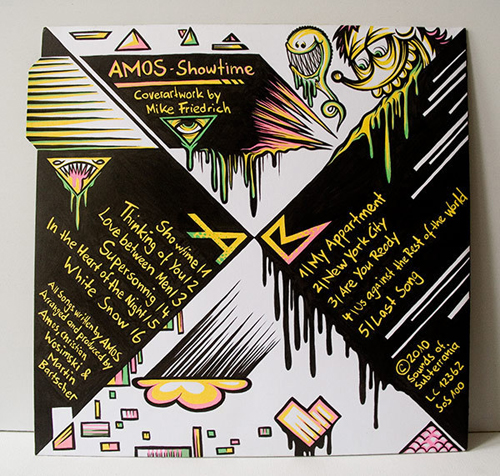 AMOS - Showtime
Coverartwork by
Mike Friedrich
A
Showtime/1
Thinking of You/2
Love between Men/3
Supersonnig/4
In the Heart of the Night/5
White Snow/6
All Songs written by AMOS
Arranged and produced by
Amos, Christian
Wosimski &
Martin
Bartscher
B
1/My Appartment
2/New York City
3/Are You Ready
4/Us against the Rest of the World
5/Last Song
©2010
Sounds of
Subterrania
LC 12362
SoS 100